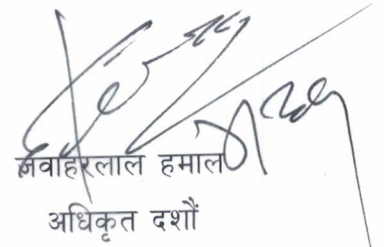 जवाहरलाल हमाल
अधिकृत दशौं